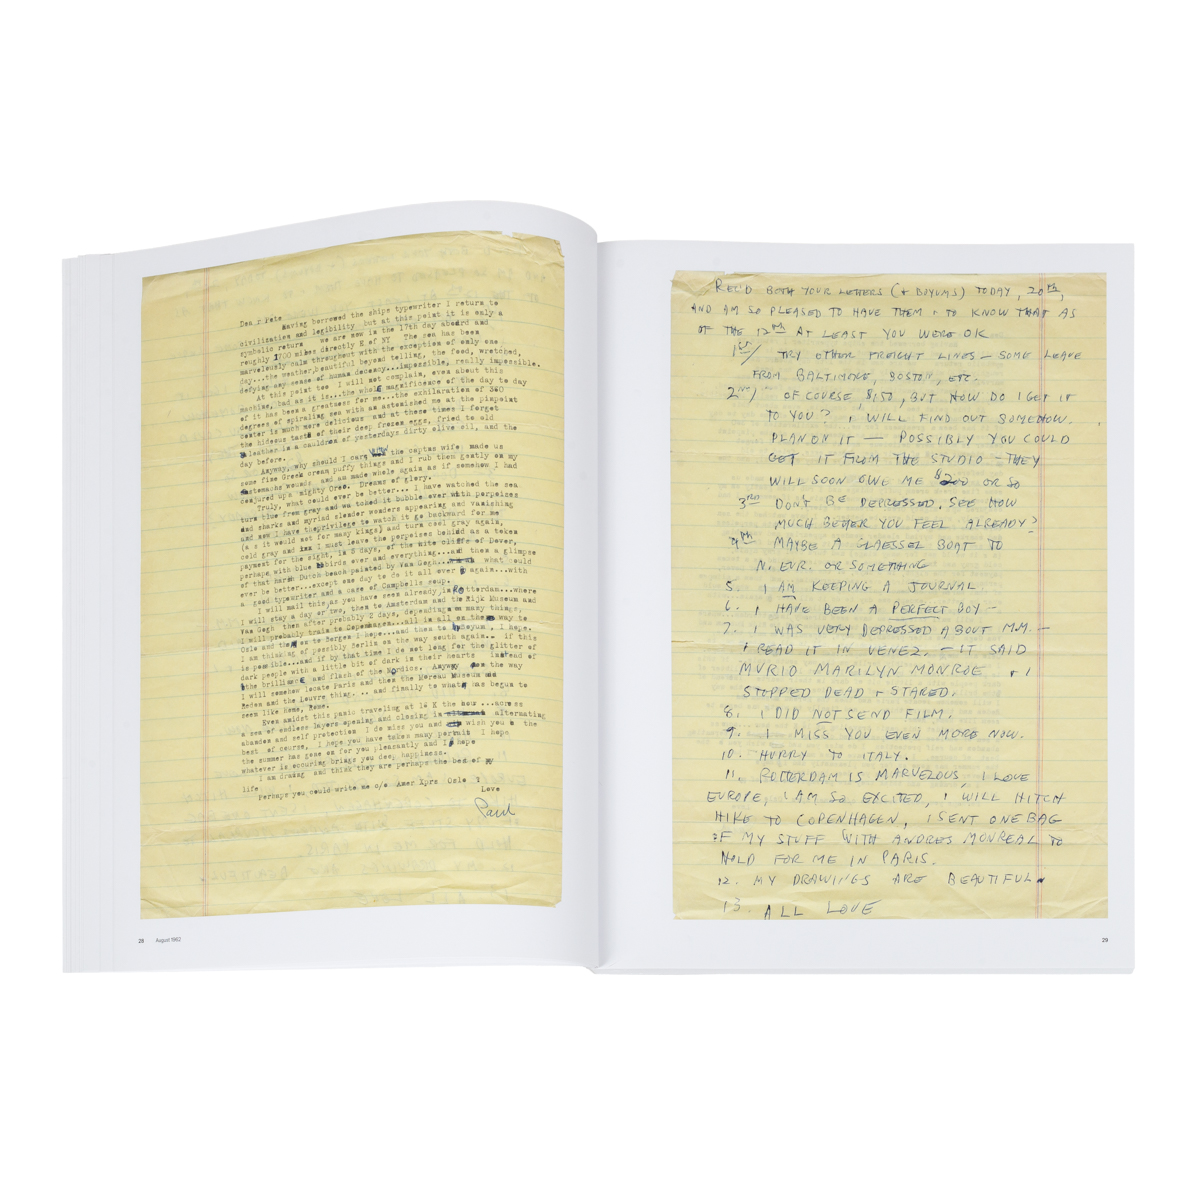 Dea r Pete
Having borrowed the ships typewriter I return to
civilization and legibility but at this point it is only a
symbolic return we are now in the 17th day aboard and
roughly 1700 miles directly E of NY The sea has been
marvelously calm throughout with the exception of only one
day...the weather,beautiful beyond telling, the food, wretched,
defying any sense of human decency...impossible, really impossible.
At this point too I will not complain, even about this
machine, bad as it is...the whole magnificence of the day to day
of it has been a greatness for me...the exhilaration of 360
degrees of spiraling sea with an astonished me at the pinpoint
center is much more delicious and at these times I forget
the hideous taste of their deep frozen eggs, fried to old
leather in a cauldron of yesterdays dirty olive oil, and the
day before.
Anyway, why should I care the captns wife made us
some fine Greek cream puffy things and I rub them gently on my
stomachs wounds and am made whole again as if somehow I had
conjured up a mighty Oreo. Dreams of glory.
Truly, what could ever be better... I have watched the sea
turn blue from gray and watched it bubble over with porpoises
and sharks and myriad slender wonders appearing and vanishing
and now I have theprivilege to watch it go backward for me
(a s it would not for many kings) and turn cool gray again,
cold gray and I must leave the porpoises behind as a token
payment for the sight, in 3 days, of the wite cliffs of Dover,
perhaps with blue birds over and everything...and then a glimpse
of that harsh Dutch beach painted by Van Gogh... what could
ever be better...except one day to do it all over again...with
a good typewriter and a case of Campbells soup.
I will mail this as you have seen already in Rotterdam...where
I will stay a day or two, then to Amsterdam and the Rijk Museum and
Van Gogh then after probably 2 days, depending on many things,
I will probably train to Copenhagen...all in all on the way to
Oslo and then on to Bergen I hope...and then to Boyum, I hope.
I am thinking of possibly Berlin on the way south again... if this
is possible...and if by that time I do not long for the glitter of
dark people with a little bit of dark in their hearts instead of
the brilliance and flash of the Nordics. Anyway on the way
I will somehow locate Paris and then the Moreau Museum and
Redon and the Louvre thing... and finally to what has begun to
seem like Home, Rome.
Even amidst this panic traveling at 14 K the hour...across
a sea of endless layers opening and closing in alternating
abandon and self protection I do miss you and wish you the
best of course. I hope you have taken many portrait I hope
the summer has gone on for you pleasantly and I hope
whatever is occuring brings you deep happiness.
I am drawing and think they are perhaps the best of my
life
Perhaps you could write me c/o Amer Xprs Oslo ?
Love
Paul
28 August 1962
REC'D BOTH YOUR LETTERS (+ BOYUMS) TODAY, 20th,
AND AM SO PLEASED TO HAVE THEM + TO KNOW THAT AS
OF THE 12th AT LEAST YOU WERE OK
1st/ TRY OTHER FREIGHT LINES – SOME LEAVE
FROM BALTIMORE, BOSTON, ETC.
2nd/ OF COURSE, $150, BUT HOW DO I GET IT
TO YOU? I WILL FIND OUT SOMEHOW.
PLAN ON IT — POSSIBLY YOU COULD
GET IT FROM THE STUDIO – THEY
WILL SOON OWE ME $200 OR SO
3rd DON'T BE DEPRESSED. SEE HOW
MUCH BETTER YOU FEEL ALREADY?
4th MAYBE A BOAT TO
N. EUR. OR SOMETHING
5. I AM KEEPING A JOURNAL
6. I HAVE BEEN A PERFECT BOY –
7. I WAS VERY DEPRESSED ABOUT M.M. –
I READ IT IN VENEZ. – IT SAID
MVRIO MARILYN MONROE + I
STOPPED DEAD + STARED.
8. I DID NOT SEND FILM.
9. I MISS YOU EVEN MORE NOW.
10. HURRY TO ITALY.
11. ROTTERDAM IS MARVELOUS, I LOVE
EUROPE, I AM SO EXCITED, I WILL HITCH
HIKE TO COPENHAGEN, I SENT ONE BAG
OF MY STUFF WITH ANDRES MONREAL TO
HOLD FOR ME IN PARIS.
12. MY DRAWINGS ARE BEAUTIFUL.
13. ALL LOVE
29